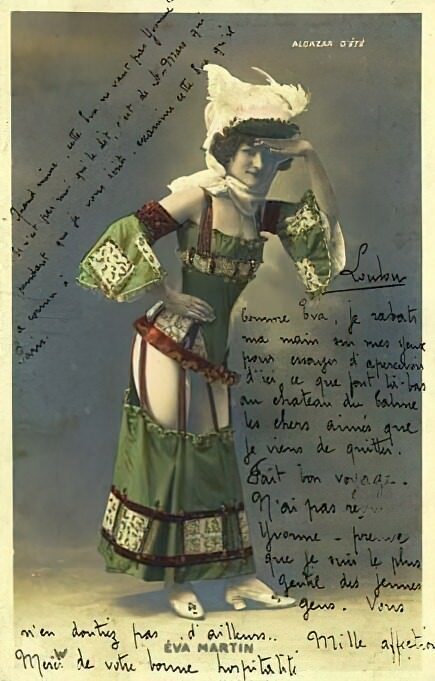 ALCAZAR D'ÉTÉ
Quand même, cette fois on vaut pas Yvonne
Ce n'est pas moi qui le dit, c'est de St-Mars qui
pendant que je vous écris examine cette
a comme
Loulou
Comme Eva, je rabats
ma main sur mes yeux
pour essayer d'apercevoir
d'ici, ce que font là-bas
au chateau du Calme
les chers aimés que
je viens de quitter.
Fait bon voyage.
N'ai pas
Yvonne - preuve
que je suis le plus
gentil des jeunes
gens. Vous
n'en doutez pas d'ailleurs..
ÉVA MARTIN
Mille affection
Merci de votre bonne hospitalité